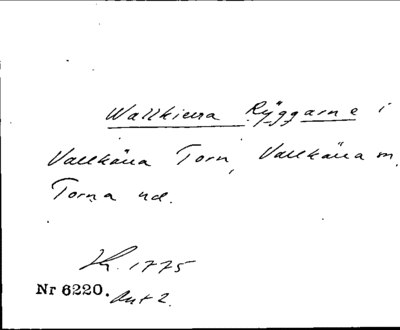 Wallkierra Ryggarne i
Vallkärra Torn, Vallkärra m,
Torna hd.
Kr. 1775
Nr 6220. Akt 2.